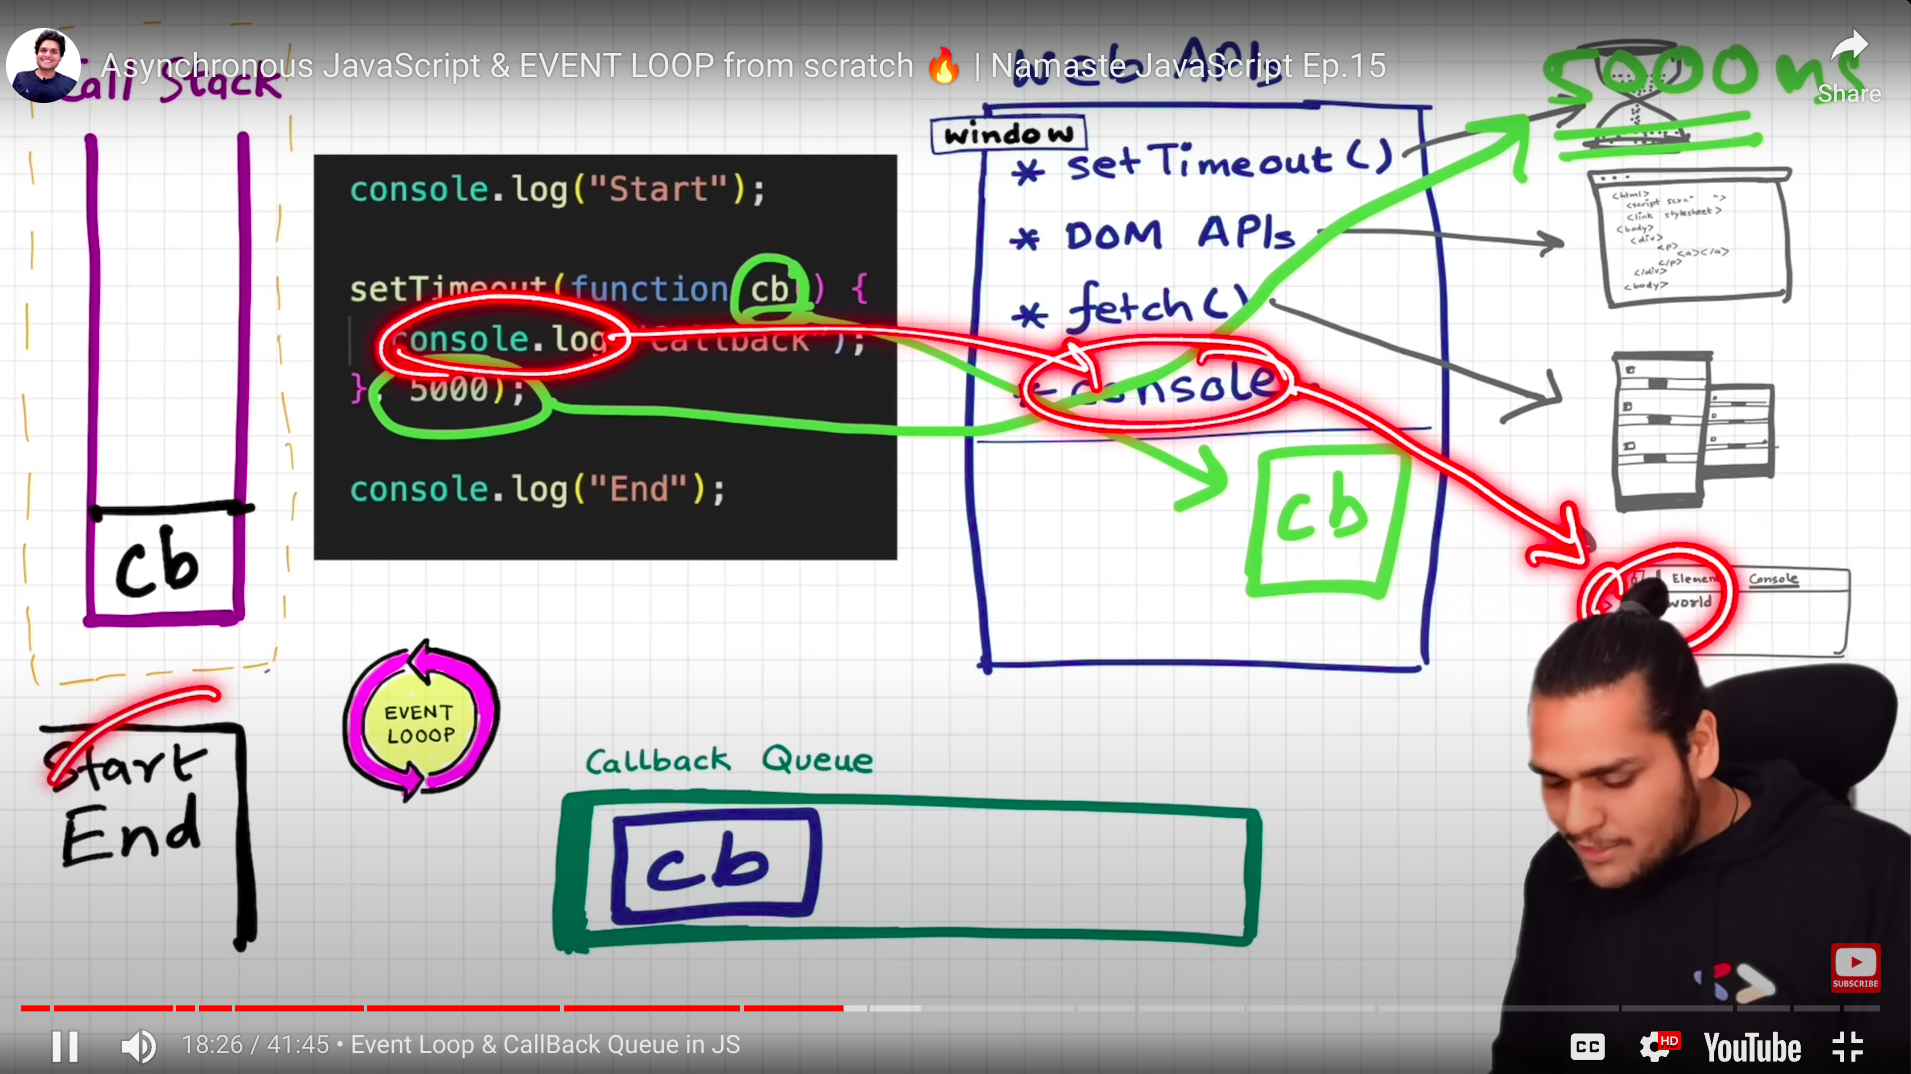 Asynchronous JavaScript & EVENT LOOP from scratch 🔥 | Namaste JavaScript Ep.15
Share
Call Stack
cb
console.log("Start");
setTimeout(function cb() {
console.log("Callback");
}, 5000);
console.log("End");
Web APIs
window
* setTimeout()
* DOM APIs
* fetch()
* console
cb
5000 ms
<html>
<link stylesheet>
<body>
<div>
<p>
<a></a>
</p>
</div>
<body>
Console
world
Start
End
EVENT
LOOOP
Callback Queue
cb
SUBSCRIBE
18:26 / 41:45 • Event Loop & CallBack Queue in JS
CC
HD
YouTube